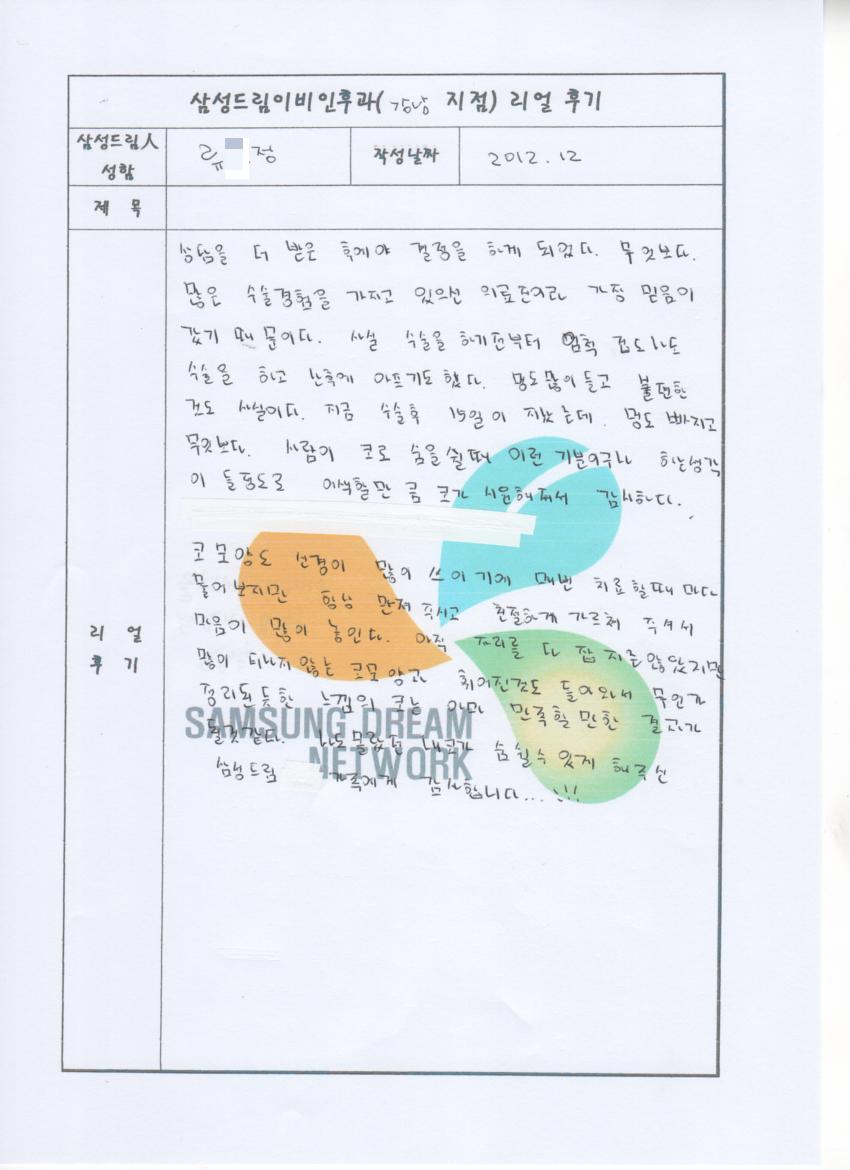 삼성드림이비인후과(강남 지점) 리얼 후기
삼성드림人
성함
류 정
작성날짜
2012.12
제 목
리 얼
후 기
상담을 더 받은 후에야 결정을 하게 되었다. 무엇보다.
많은 수술경험을 가지고 있으신 의료진이라 가장 믿음이
갔기 때문이다. 사실 수술을 하기전부터 엄청 겁도나도
수술을 하고 난후에 아프기도 했다. 멍도많이 들고 불편한
것도 사실이다. 지금 수술후 15일이 지났는데. 멍도 빠지고
무엇보다. 사람이 코로 숨을 쉴때 이런 기분이구나 하는생각
이 들정도로 어색할만 큼 코가 시원해져서 감사하다.
코모양도 신경이 많이 쓰이기에 매번 치료할때 마다
물어보지만 항상 만져 주시고 친절하게 가르쳐 주셔서
마음이 많이 놓인다. 아직 자리를 다 잡지는않았지만
많이 티나지 않는 코모양과 휘어진것도 돌아와서 무언가
정리된듯한 느낌의 코는 아마 만족할만한 결과가
될것같다. 나도몰랐던 내코가 숨쉴수 있게 해주신
삼성드림 가족에게 감사합니다...!!!
SAMSUNG DREAM
NETWORK